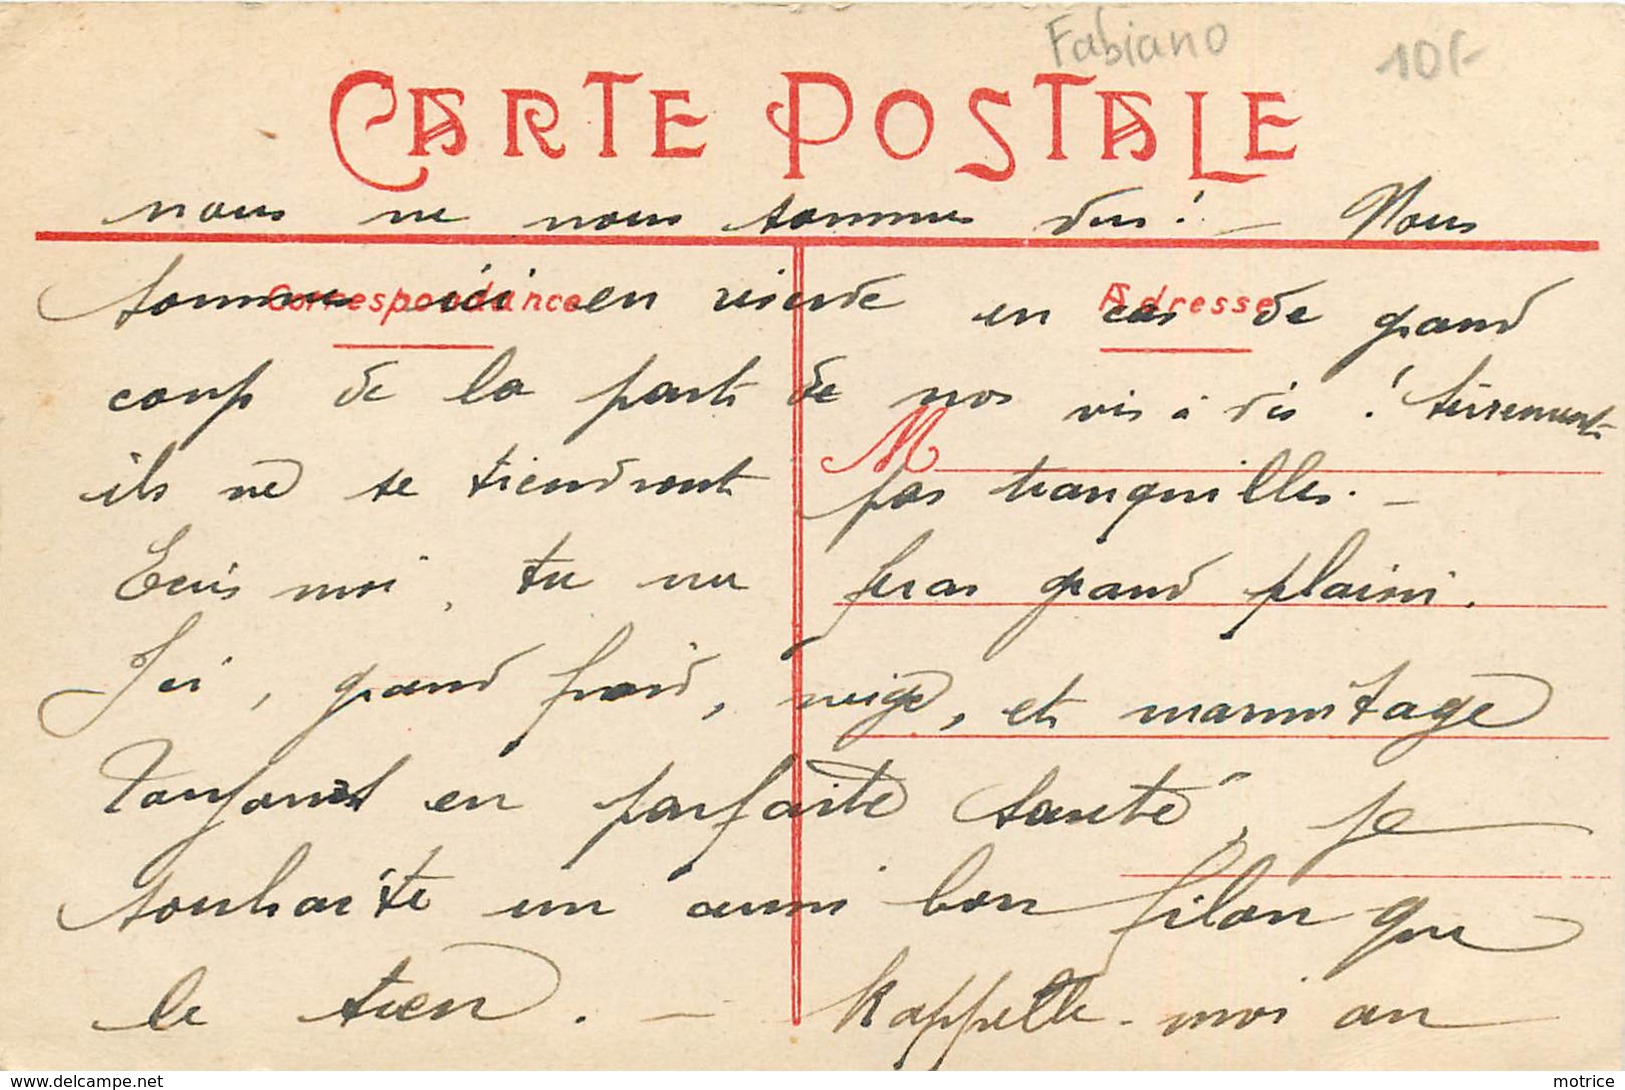 Fabiano
10F
CARTE POSTALE
nous ne nous sommes vus! - Nous
Correspondance
Adresse
sommes ici en réserve en cas de grand
coup de la part de nos vis à vis !
M
ils ne se tiendront pas tranquilles. -
Ecris moi, tu me feras grand plaisir.
Ici, grand froid, neige, et marmitage
Toujours en parfaite santé, je
souhaite un aussi bon filon que
le tien. - Rappelle-moi au
www.delcampe.net
motrice